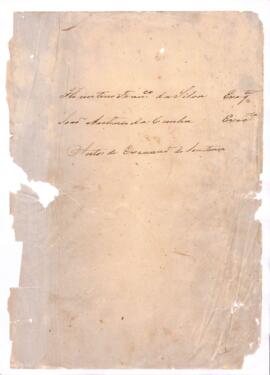 Franco. da Silva Exeqte.
José Antonio da Cunha Execdo.
Autos de Execução de Sentença